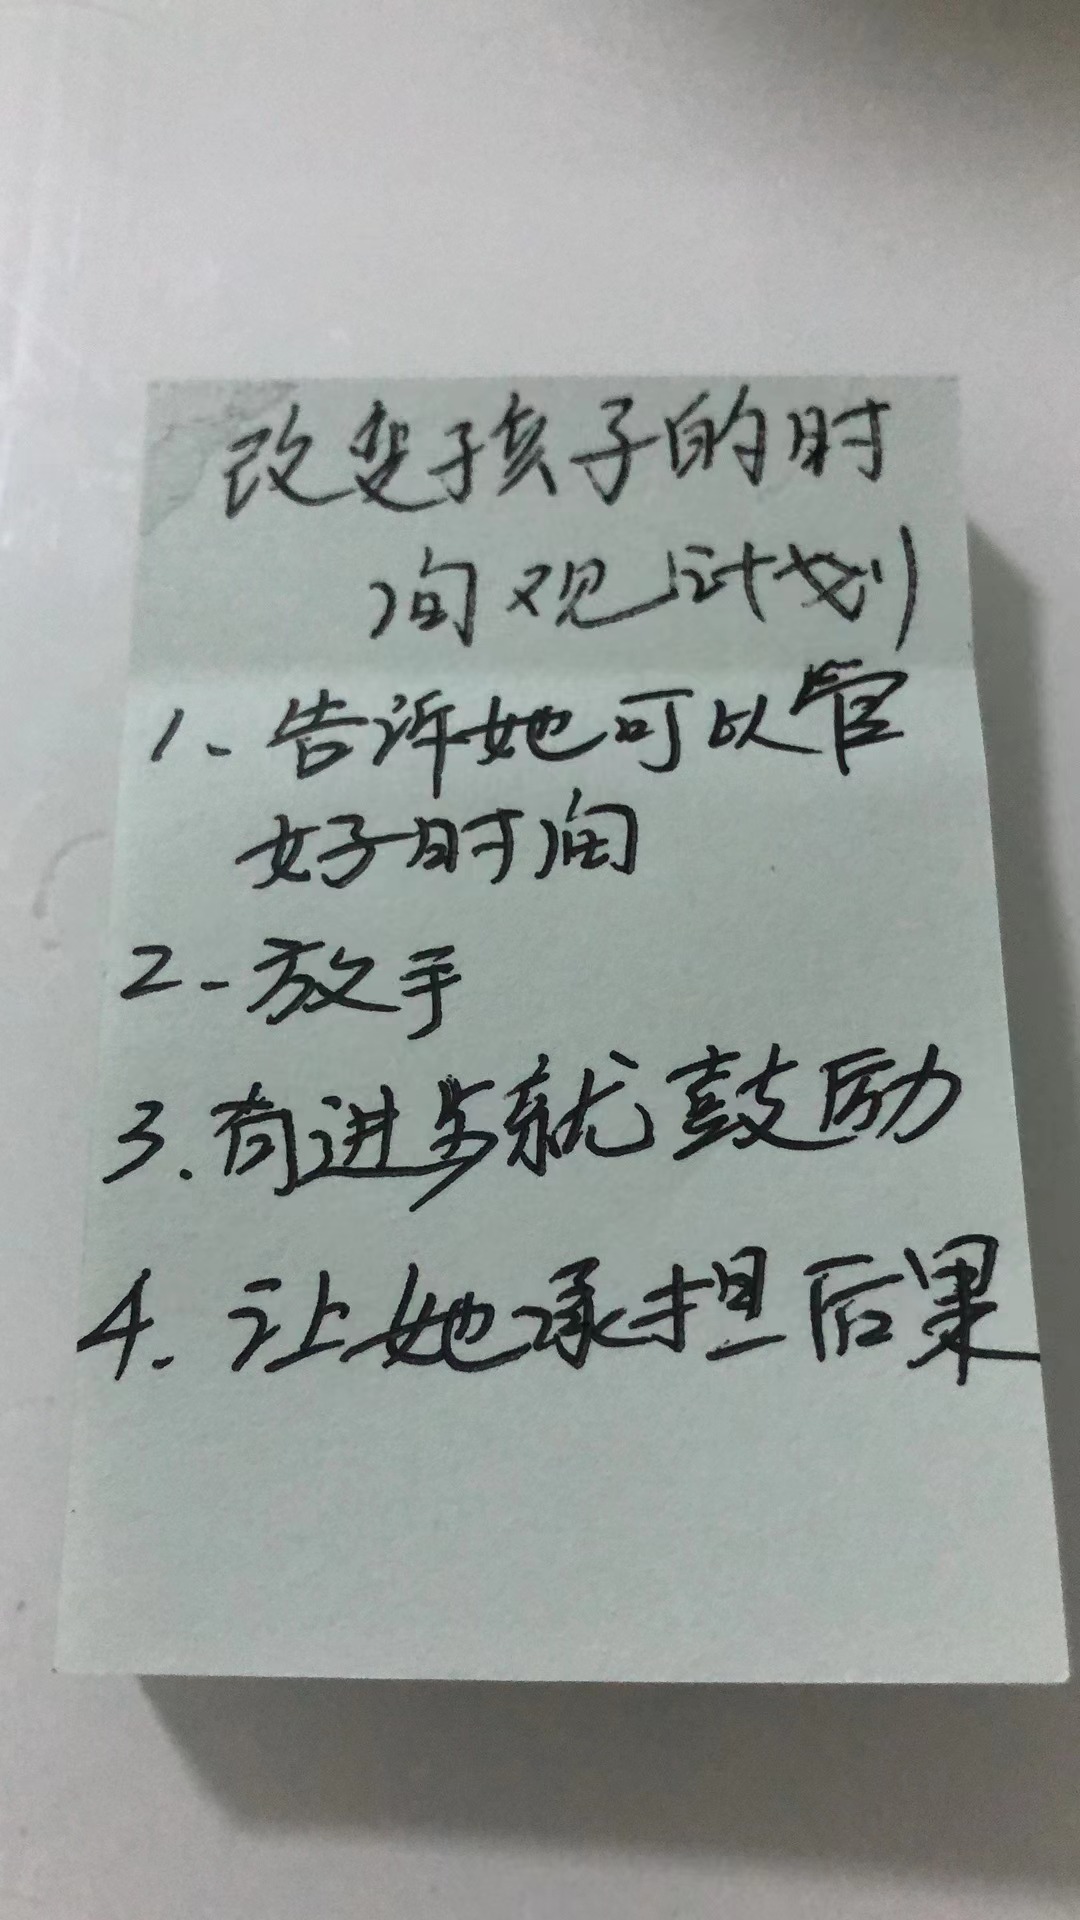 改变孩子的时
间观计划
1、告诉她可以管
好时间
2、放手
3.有进步就鼓励
4.让她承担后果